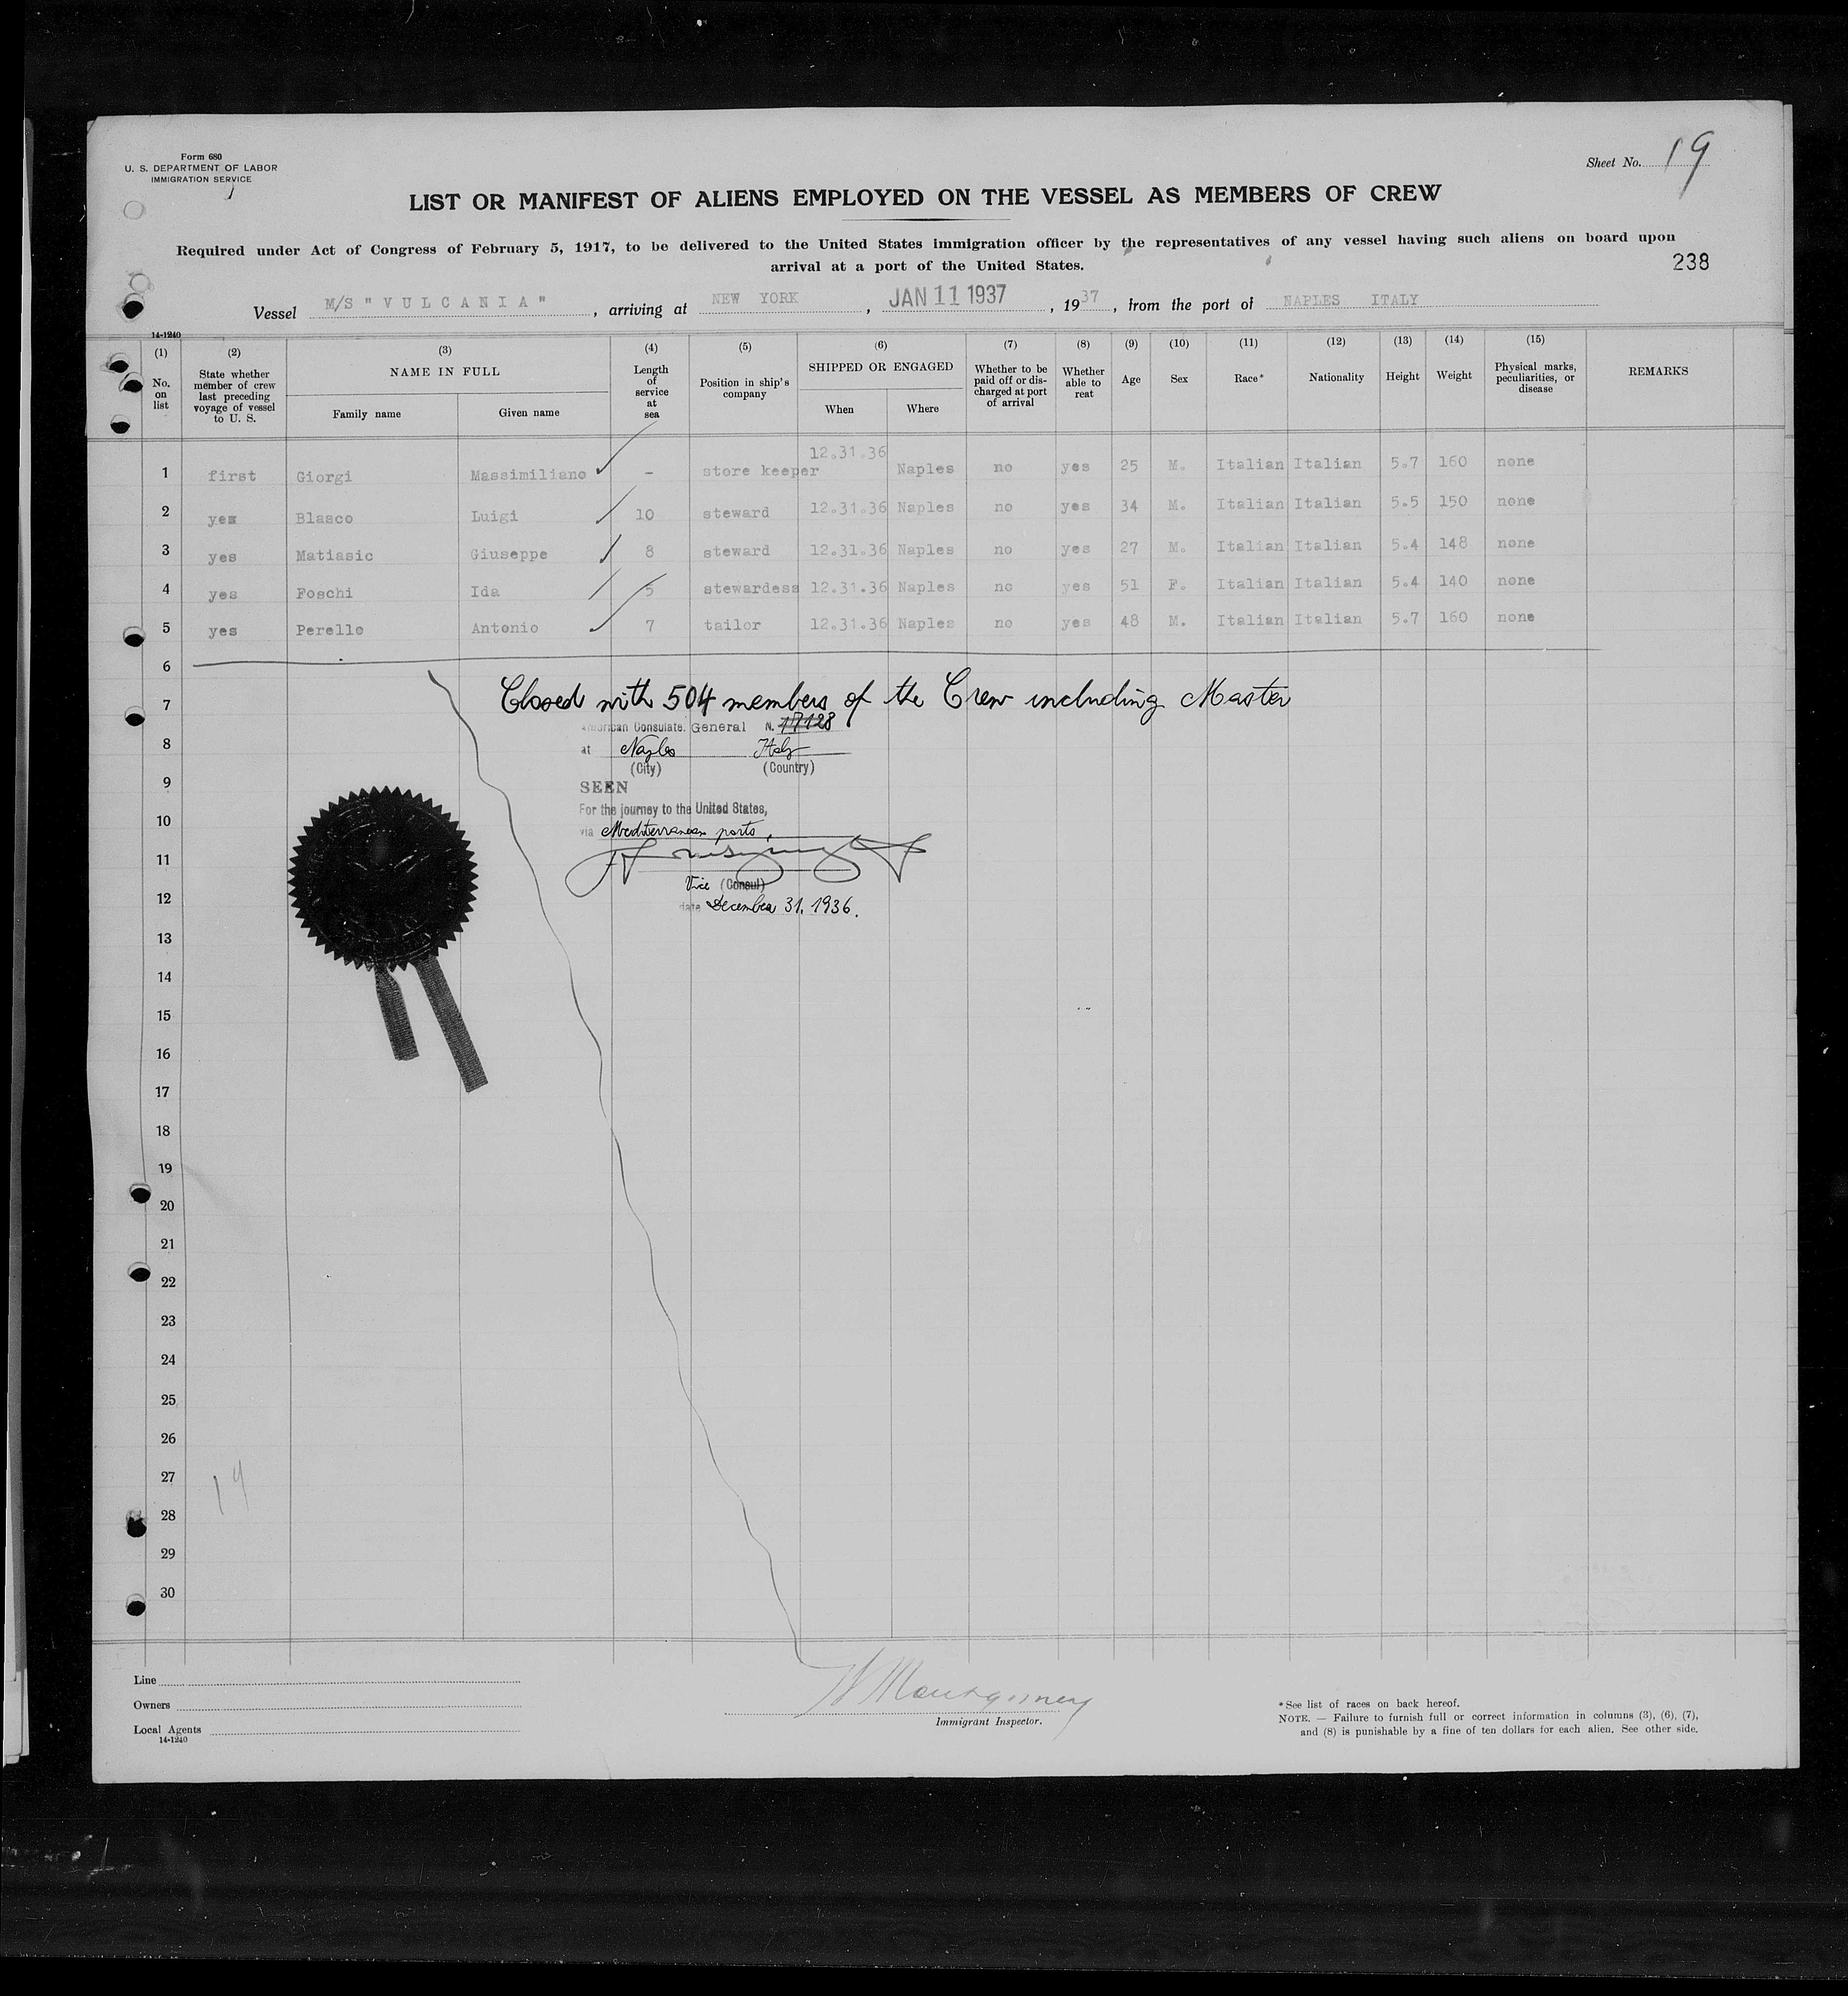 Form 680
U. S. DEPARTMENT OF LABOR
IMMIGRATION SERVICE
Sheet No. 19
LIST OR MANIFEST OF ALIENS EMPLOYED ON THE VESSEL AS MEMBERS OF CREW
Required under Act of Congress of February 5, 1917, to be delivered to the United States immigration officer by the representatives of any vessel having such aliens on board upon
arrival at a port of the United States.
238
Vessel M/S "VULCANIA", arriving at NEW YORK, JAN 11 1937, 1937, from the port of NAPLES ITALY
14-1240
(1) (2) (3) (4) (5) (6) (7) (8) (9) (10) (11) (12) (13) (14) (15)
No. on list
State whether member of crew last preceding voyage of vessel to U. S.
NAME IN FULL
Family name Given name
Length of service at sea
Position in ship's company
SHIPPED OR ENGAGED
When Where
Whether to be paid off or discharged at port of arrival
Whether able to reat
Age
Sex
Race*
Nationality
Height
Weight
Physical marks, peculiarities, or disease
REMARKS
1 first Giorgi Massimiliano - store keeper 12.31.36 Naples no yes 25 M. Italian Italian 5.7 160 none
2 yes Blasco Luigi 10 steward 12.31.36 Naples no yes 34 M. Italian Italian 5.5 150 none
3 yes Matiasic Giuseppe 8 steward 12.31.36 Naples no yes 27 M. Italian Italian 5.4 148 none
4 yes Foschi Ida 5 stewardess 12.31.36 Naples no yes 51 F. Italian Italian 5.4 140 none
5 yes Perello Antonio 7 tailor 12.31.36 Naples no yes 48 M. Italian Italian 5.7 160 none
6
7 Closed with 504 members of the Crew including Master
American Consulate General N. 17128
8 at Naples Italy
(City) (Country)
9 SEEN
For the journey to the United States,
10 via Mediterranean ports,
11
Vice (Consul)
12 date December 31, 1936.
13
14
15
16
17
18
19
20
21
22
23
24
25
26
27
28
29
30
19
Line
Owners
Local Agents
14-1240
Montgomery
Immigrant Inspector.
*See list of races on back hereof.
NOTE. — Failure to furnish full or correct information in columns (3), (6), (7),
and (8) is punishable by a fine of ten dollars for each alien. See other side.